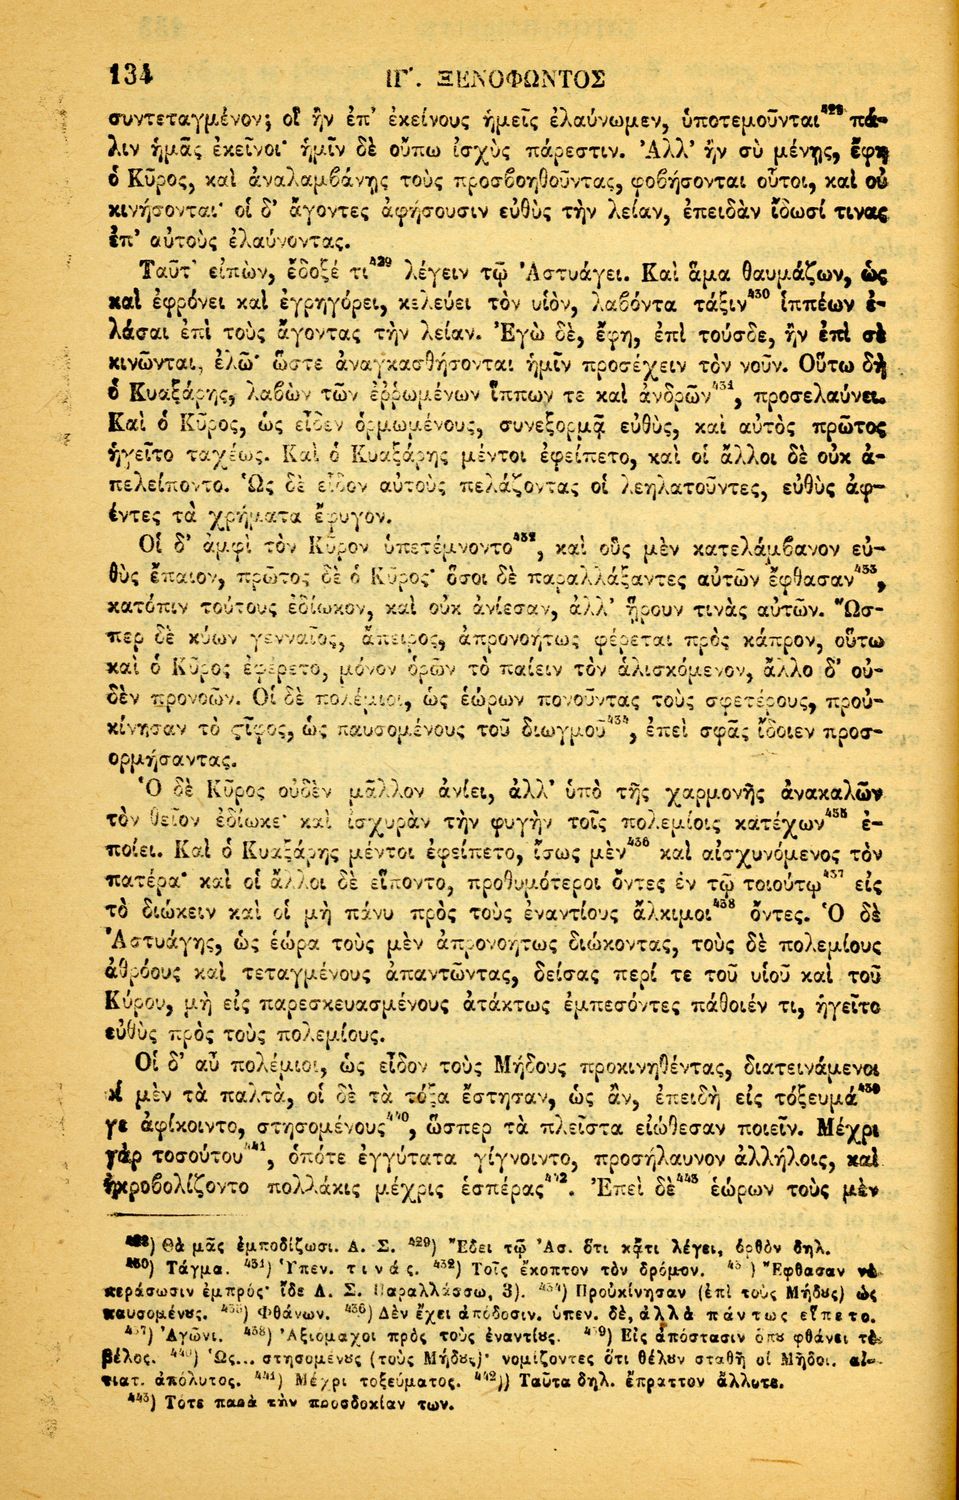 134 ΙΓʹ. ΞΕΝΟΦΩΝΤΟΣ
συντεταγμένον; οἳ ἢν ἐπ’ ἐκείνους ἡμεῖς ἐλαύνωμεν, ὑποτεμοῦνται⁴²⁸ πά-
λιν ἡμᾶς ἐκεῖνοι· ἡμῖν δὲ οὔπω ἰσχὺς πάρεστιν. Ἀλλ’ ἢν σὺ μένῃς, ἔφη
ὁ Κῦρος, καὶ ἀναλαμβάνῃς τοὺς προσβοηθοῦντας, φοβήσονται οὗτοι, καὶ οὐ
κινήσονται· οἱ δ’ ἄγοντες ἀφήσουσιν εὐθὺς τὴν λείαν, ἐπειδὰν ἴδωσί τινας
ἐπ’ αὐτοὺς ἐλαύνοντας.
Ταῦτ’ εἰπὼν, ἔδοξέ τι⁴²⁹ λέγειν τῷ Ἀστυάγει. Καὶ ἅμα θαυμάζων, ὡς
καὶ ἐφρόνει καὶ ἐγρηγόρει, κελεύει τὸν υἱὸν, λαβόντα τάξιν⁴³⁰ ἱππέων ἐ-
λάσαι ἐπὶ τοὺς ἄγοντας τὴν λείαν. Ἐγὼ δὲ, ἔφη, ἐπὶ τούσδε, ἢν ἐπὶ σὲ
κινῶνται, ἐλῶ· ὥστε ἀναγκασθήσονται ἡμῖν προσέχειν τὸν νοῦν. Οὕτω δὴ
ὁ Κυαξάρης, λαβὼν τῶν ἐῤῥωμένων ἵππων τε καὶ ἀνδρῶν⁴³¹, προσελαύνει.
Καὶ ὁ Κῦρος, ὡς εἶδεν ὁρμωμένους, συνεξορμᾷ εὐθὺς, καὶ αὐτὸς πρῶτος
ἡγεῖτο ταχέως. Καὶ ὁ Κυαξάρης μέντοι ἐφείπετο, καὶ οἱ ἄλλοι δὲ οὐκ ἀ-
πελείποντο. Ὡς δὲ εἶδον αὐτοὺς πελάζοντας οἱ λεηλατοῦντες, εὐθὺς ἀφ-
έντες τὰ χρήματα ἔφυγον.
Οἱ δ’ ἀμφὶ τὸν Κῦρον ὑπετέμνοντο⁴³², καὶ οὓς μὲν κατελάμβανον εὐ-
θὺς ἔπαιον, πρῶτος δὲ ὁ Κῦρος· ὅσοι δὲ παραλλάξαντες αὐτῶν ἔφθασαν⁴³³,
κατόπιν τούτους ἐδίωκον, καὶ οὐκ ἀνίεσαν, ἀλλ’ ᾕρουν τινὰς αὐτῶν. Ὥσ-
περ δὲ κύων γενναῖος, ἄπειρος, ἀπρονοήτως φέρεται πρὸς κάπρον, οὕτω
καὶ ὁ Κῦρος ἐφέρετο, μόνον ὁρῶν τὸ παίειν τὸν ἁλισκόμενον, ἄλλο δ’ οὐ-
δὲν προνοῶν. Οἱ δὲ πολέμιοι, ὡς ἑώρων πονοῦντας τοὺς σφετέρους, προὐ-
κίνησαν τὸ ϛῖφος, ὡς παυσομένους τοῦ διωγμοῦ⁴³⁴, ἐπεὶ σφᾶς ἴδοιεν προσ-
ορμήσαντας.
Ὁ δὲ Κῦρος οὐδὲν μᾶλλον ἀνίει, ἀλλ’ ὑπὸ τῆς χαρμονῆς ἀνακαλῶν
τὸν θεῖον ἐδίωκε· καὶ ἰσχυρὰν τὴν φυγὴν τοῖς πολεμίοις κατέχων⁴³⁵ ἐ-
ποίει. Καὶ ὁ Κυαξάρης μέντοι ἐφείπετο, ἴσως μὲν⁴³⁶ καὶ αἰσχυνόμενος τὸν
πατέρα· καὶ οἱ ἄλλοι δὲ εἵποντο, προθυμότεροι ὄντες ἐν τῷ τοιούτῳ⁴³⁷ εἰς
τὸ διώκειν καὶ οἱ μὴ πάνυ πρὸς τοὺς ἐναντίους ἄλκιμοι⁴³⁸ ὄντες. Ὁ δὲ
Ἀστυάγης, ὡς ἑώρα τοὺς μὲν ἀπρονοήτως διώκοντας, τοὺς δὲ πολεμίους
ἀθρόους καὶ τεταγμένους ἀπαντῶντας, δείσας περί τε τοῦ υἱοῦ καὶ τοῦ
Κύρου, μὴ εἰς παρεσκευασμένους ἀτάκτως ἐμπεσόντες πάθοιέν τι, ἡγεῖτο
εὐθὺς πρὸς τοὺς πολεμίους.
Οἱ δ’ αὖ πολέμιοι, ὡς εἶδον τοὺς Μήδους προκινηθέντας, διατεινάμενοι
οἱ μὲν τὰ παλτὰ, οἱ δὲ τὰ τόξα ἔστησαν, ὡς ἂν, ἐπειδὴ εἰς τόξευμά⁴³⁹
γε ἀφίκοιντο, στησομένους⁴⁴⁰, ὥσπερ τὰ πλεῖστα εἰώθεσαν ποιεῖν. Μέχρι
γὰρ τοσούτου⁴⁴¹, ὁπότε ἐγγύτατα γίγνοιντο, προσήλαυνον ἀλλήλοις, καὶ
ἠκροβολίζοντο πολλάκις μέχρις ἑσπέρας⁴⁴². Ἐπεὶ δὲ⁴⁴³ ἑώρων τοὺς μὲν
⁴²⁸) Θὰ μᾶς ἐμποδίζωσι. Δ. Σ. ⁴²⁹) Ἔδει τῷ Ἀσ. ὅτι κᾄτι λέγει, ὀρθὸν δηλ.
⁴³⁰) Τάγμα. ⁴³¹) Ὑπεν. τινάς. ⁴³²) Τοῖς ἔκοπτον τὸν δρόμον. ⁴³³) Ἔφθασαν νὰ
περάσωσιν ἐμπρός· ἴδε Δ. Σ. Παραλλάσσω, 3). ⁴³⁴) Προὐκίνησαν (ἐπὶ τοὺς Μήδȣς) ὡς
παυσομένȣς. ⁴³⁵) Φθάνων. ⁴³⁶) Δὲν ἔχει ἀπόδοσιν. ὑπεν. δὲ, ἀλλὰ πάντως εἵπετο.
⁴³⁷) Ἀγῶνι. ⁴³⁸) Ἀξιομαχοι πρὸς τοὺς ἐναντίȣς. ⁴³⁹) Εἰς ἀπόστασιν ὁπȣ φθάνει τὸ
βέλος. ⁴⁴⁰) Ὡς... στησομένȣς (τοὺς Μήδȣς)· νομίζοντες ὅτι θέλȣν σταθῆ οἱ Μῆδοι. αἰ-
τιατ. ἀπόλυτος. ⁴⁴¹) Μέχρι τοξεύματος. ⁴⁴²)) Ταῦτα δηλ. ἔπραττον ἄλλοτε.
⁴⁴³) Τότε παρὰ τὴν προσδοκίαν των.